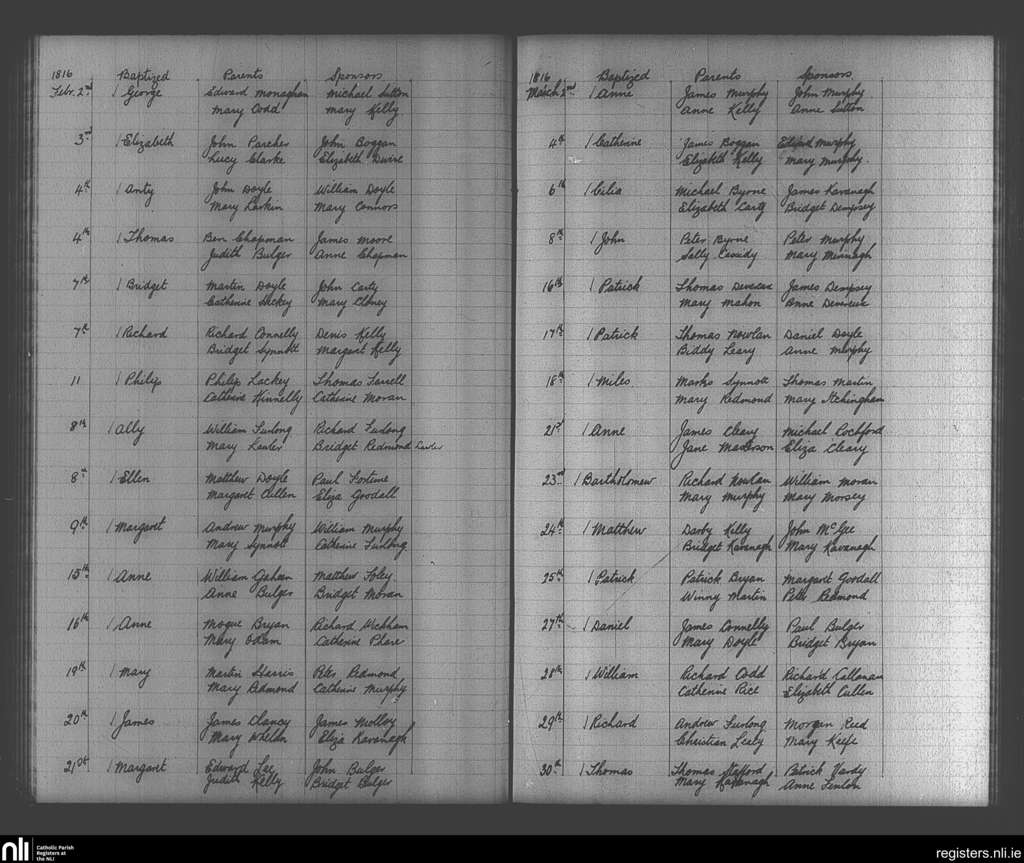 1816 Baptized Parents Sponsors
Febr. 2nd 1 George Edward Monaghan Michael Sutton
Mary Codd Mary Kelly
3rd 1 Elizabeth John Parcher John Boggan
Lucy Clarke Elizabeth Divine
4th 1 Anty John Doyle William Doyle
Mary Larkin Mary Connors
4th 1 Thomas Ben Chapman James Moore
Judith Bulger Anne Chapman
7th 1 Bridget Martin Doyle John Carty
Catherine Hickey Mary Cloney
7th 1 Richard Richard Connelly Denis Kelly
Bridget Synnott Margaret Kelly
11 1 Philip Philip Lackey Thomas Farrell
Catherine Kinnelly Catherine Moran
8th 1 Ally William Furlong Richard Furlong
Mary Lawler Bridget Redmond Lawler
8th 1 Ellen Matthew Doyle Paul Fortune
Margaret Cullen Eliza Goodall
9th 1 Margaret Andrew Murphy William Murphy
Mary Synnott Catherine Furlong
15th 1 Anne William Gahan Matthew Foley
Anne Bulger Bridget Moran
16th 1 Anne Mogue Bryan Richard Wickham
Mary Odam Catherine Phare
19th 1 Mary Martin Harris Peter Redmond
Mary Redmond Catherine Murphy
20th 1 James James Clancy James Molloy
Mary Whelan Eliza Kavanagh
21st 1 Margaret Edward Lee John Bulger
Judith Kelly Bridget Bulger
1816 Baptized Parents Sponsors
March 2nd 1 Anne James Murphy John Murphy
Anne Kelly Anne Sutton
4th 1 Catherine James Boggan Murphy
Elizabeth Kelly Mary Murphy
6th 1 Celia Michael Byrne James Kavanagh
Elizabeth Carty Bridget Dempsey
8th 1 John Peter Byrne Peter Murphy
Sally Cassidy Mary Murnagh
16th 1 Patrick Thomas Devereux James Dempsey
Mary Mahon Anne Devereux
17th 1 Patrick Thomas Nowlan Daniel Doyle
Biddy Leary Anne Murphy
18th 1 Miles Marks Synnott Thomas Martin
Mary Redmond Mary Itchingham
21st 1 Anne James Cleary Michael Cochford
Jane Masterson Eliza Cleary
23rd 1 Bartholomew Richard Nowlan William Moran
Mary Murphy Mary Morsey
24th 1 Matthew Darby Kelly John McGee
Bridget Kavanagh Mary Kavanagh
25th 1 Patrick Patrick Bryan Margaret Goodall
Winny Martin Peter Redmond
27th 1 Daniel James Connelly Paul Bulger
Mary Doyle Bridget Bryan
28th 1 William Richard Codd Richard Callanan
Catherine Rice Elizabeth Cullen
29th 1 Richard Andrew Furlong Morgan Reed
Christian Lealy Mary Keefe
30th 1 Thomas Thomas Stafford Patrick Hardy
Mary Kavanagh Anne Fenlon
nli Catholic Parish
Registers at
the NLI
registers.nli.ie